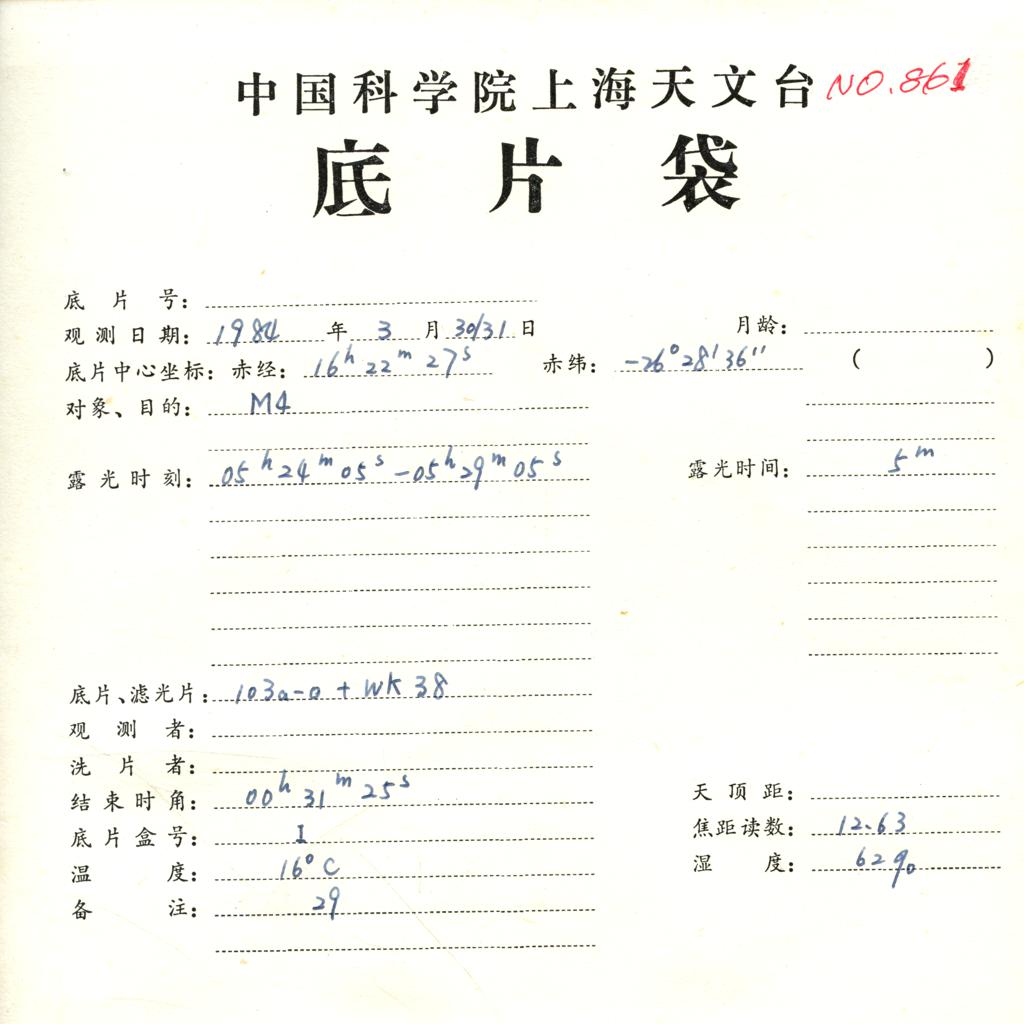 中国科学院上海天文台 NO.861
底片袋
底片号:
观测日期: 1984 年 3 月 30/31 日 月龄:
底片中心坐标: 赤经: 16h 22m 27s 赤纬: -26° 28' 36" ( )
对象、目的: M4
露光时刻: 05h 24m 05s - 05h 29m 05s 露光时间: 5m
底片、滤光片: 103a-o + WK 38
观测者:
洗片者:
结束时角: 00h 31m 25s 天顶距:
底片盒号: I 焦距读数: 12.63
温度: 16°C 湿度: 62%
备注: 29